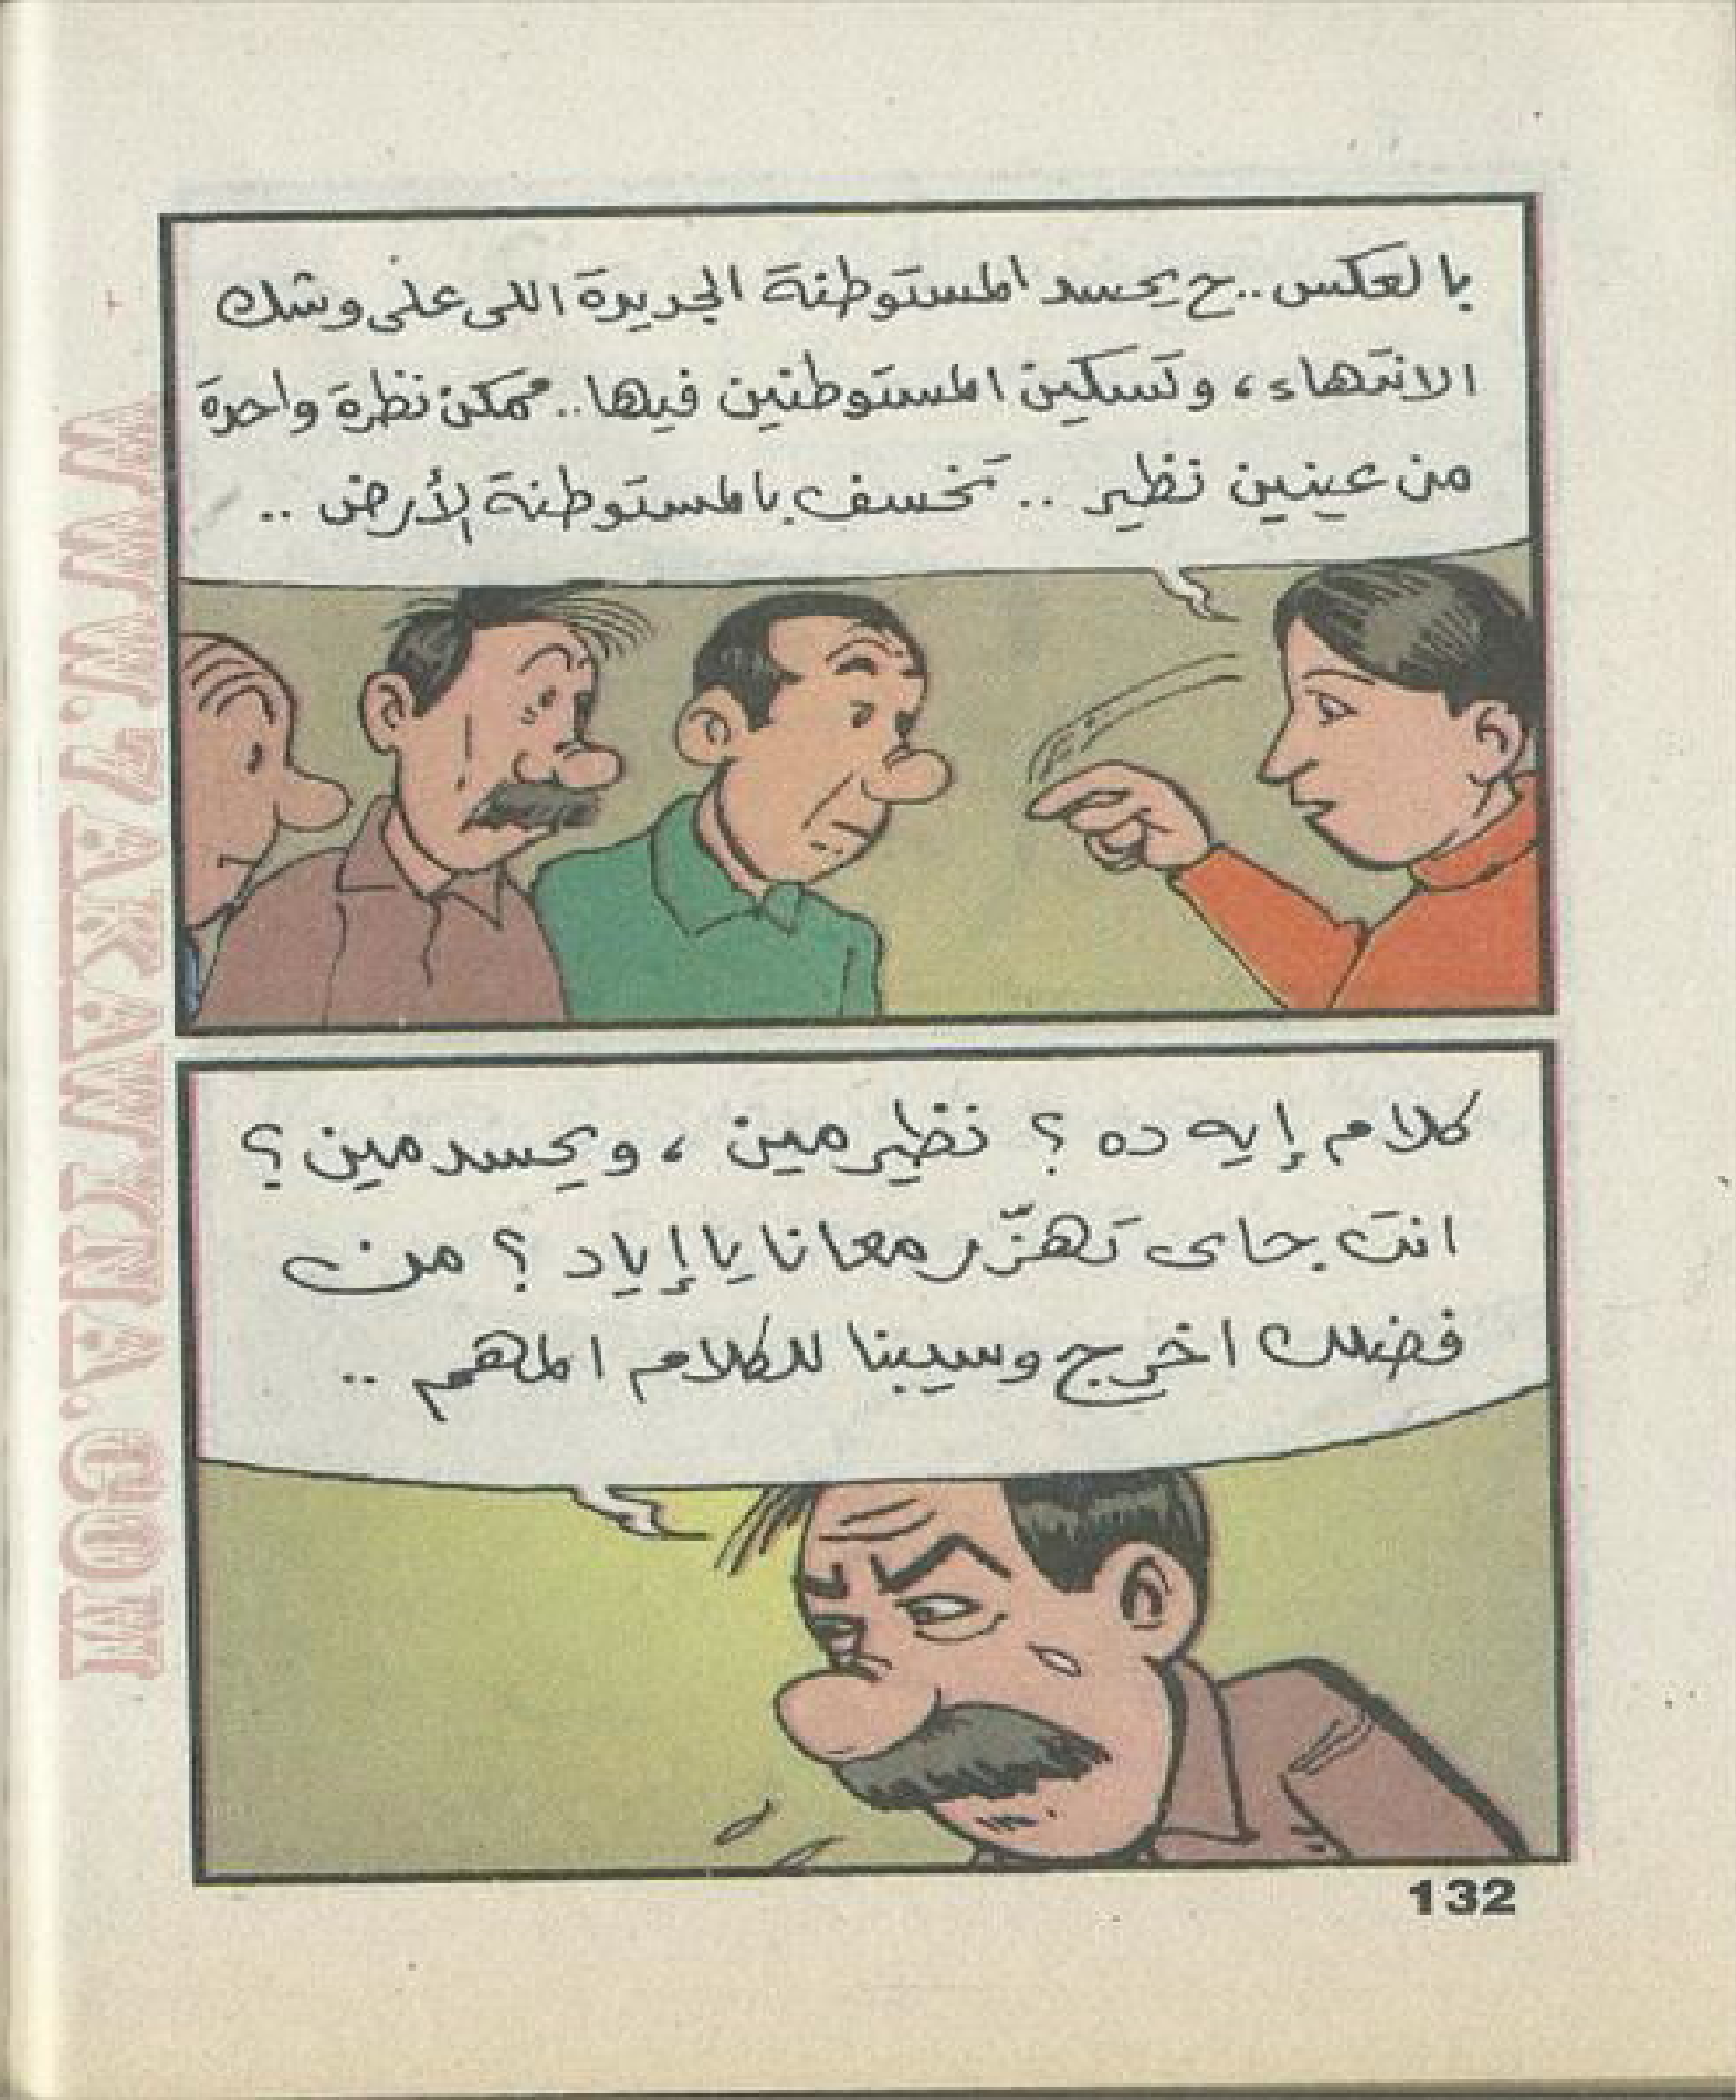 بالعكس.. ح يحسد المستوطنة الجديدة اللى على وشك
الانتهاء، وتسكين المستوطنين فيها.. ممكن نظرة واحدة
من عينين نظير .. تخسف بالمستوطنة الأرض ..
كلام إيه ده ؟ نظير مين ، ويحسد مين ؟
انت جاى تهزّر معانا يا إياد ؟ من
فضلك اخرج وسيبنا للكلام المهم ..
132
WWW.ZAKAWTNA.COM